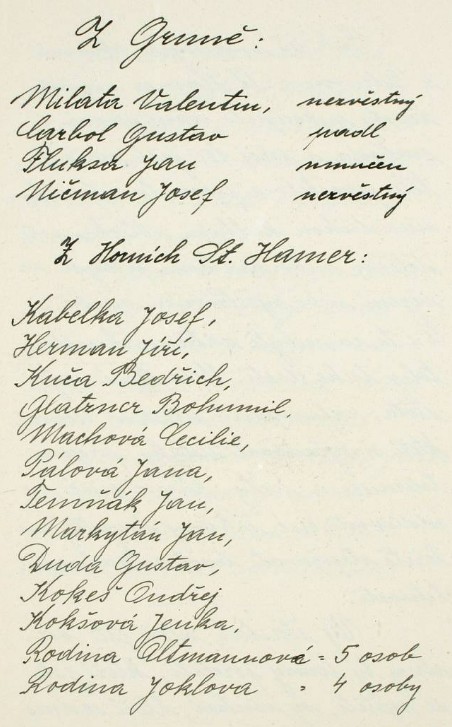 Z Gruně:
Milata Valentin, nezvěstný
Carbol Gustav padl
Fluksa Jan umučen
Ničman Josef nezvěstný
Z Horních St. Hamer:
Kabelka Josef,
Herman Jiří,
Kuča Bedřich,
Glatzner Bohumil,
Machová Cecilie,
Pálová Jana,
Temňák Jan,
Markytán Jan,
Duda Gustav,
Kokeš Ondřej
Kokšová Jenka,
Rodina Altmannová = 5 osob
Rodina Joklova = 4 osoby